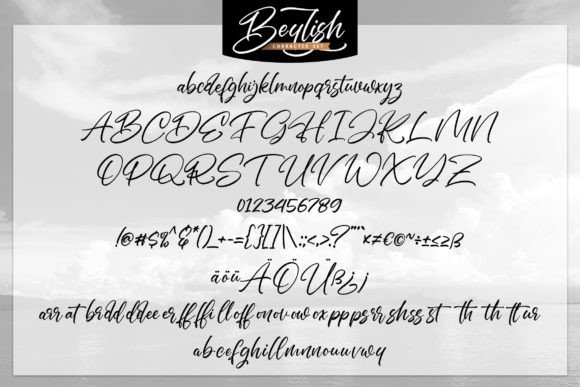 Beylish
CHARACTER SET
abcdefghijklmnopqrstuvwxyz
ABCDEFGHIJKLMN
OPQRSTUVWXYZ
0123456789
!@#$%^&*()_+-={}[]|\:;<,>.?"'`×≠€©~÷±≤≥ß
äöüÄÖÜß¿¡j
arr at br dd ddee er ff ffi ll off on ov ow ox pp ps rr sh ss st th th tt ur
abcefghillmnnouuvwy